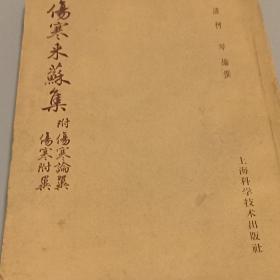 清 柯琴 編撰
上海科学技术出版社
傷寒来蘇集
附 傷寒論翼
傷寒附翼